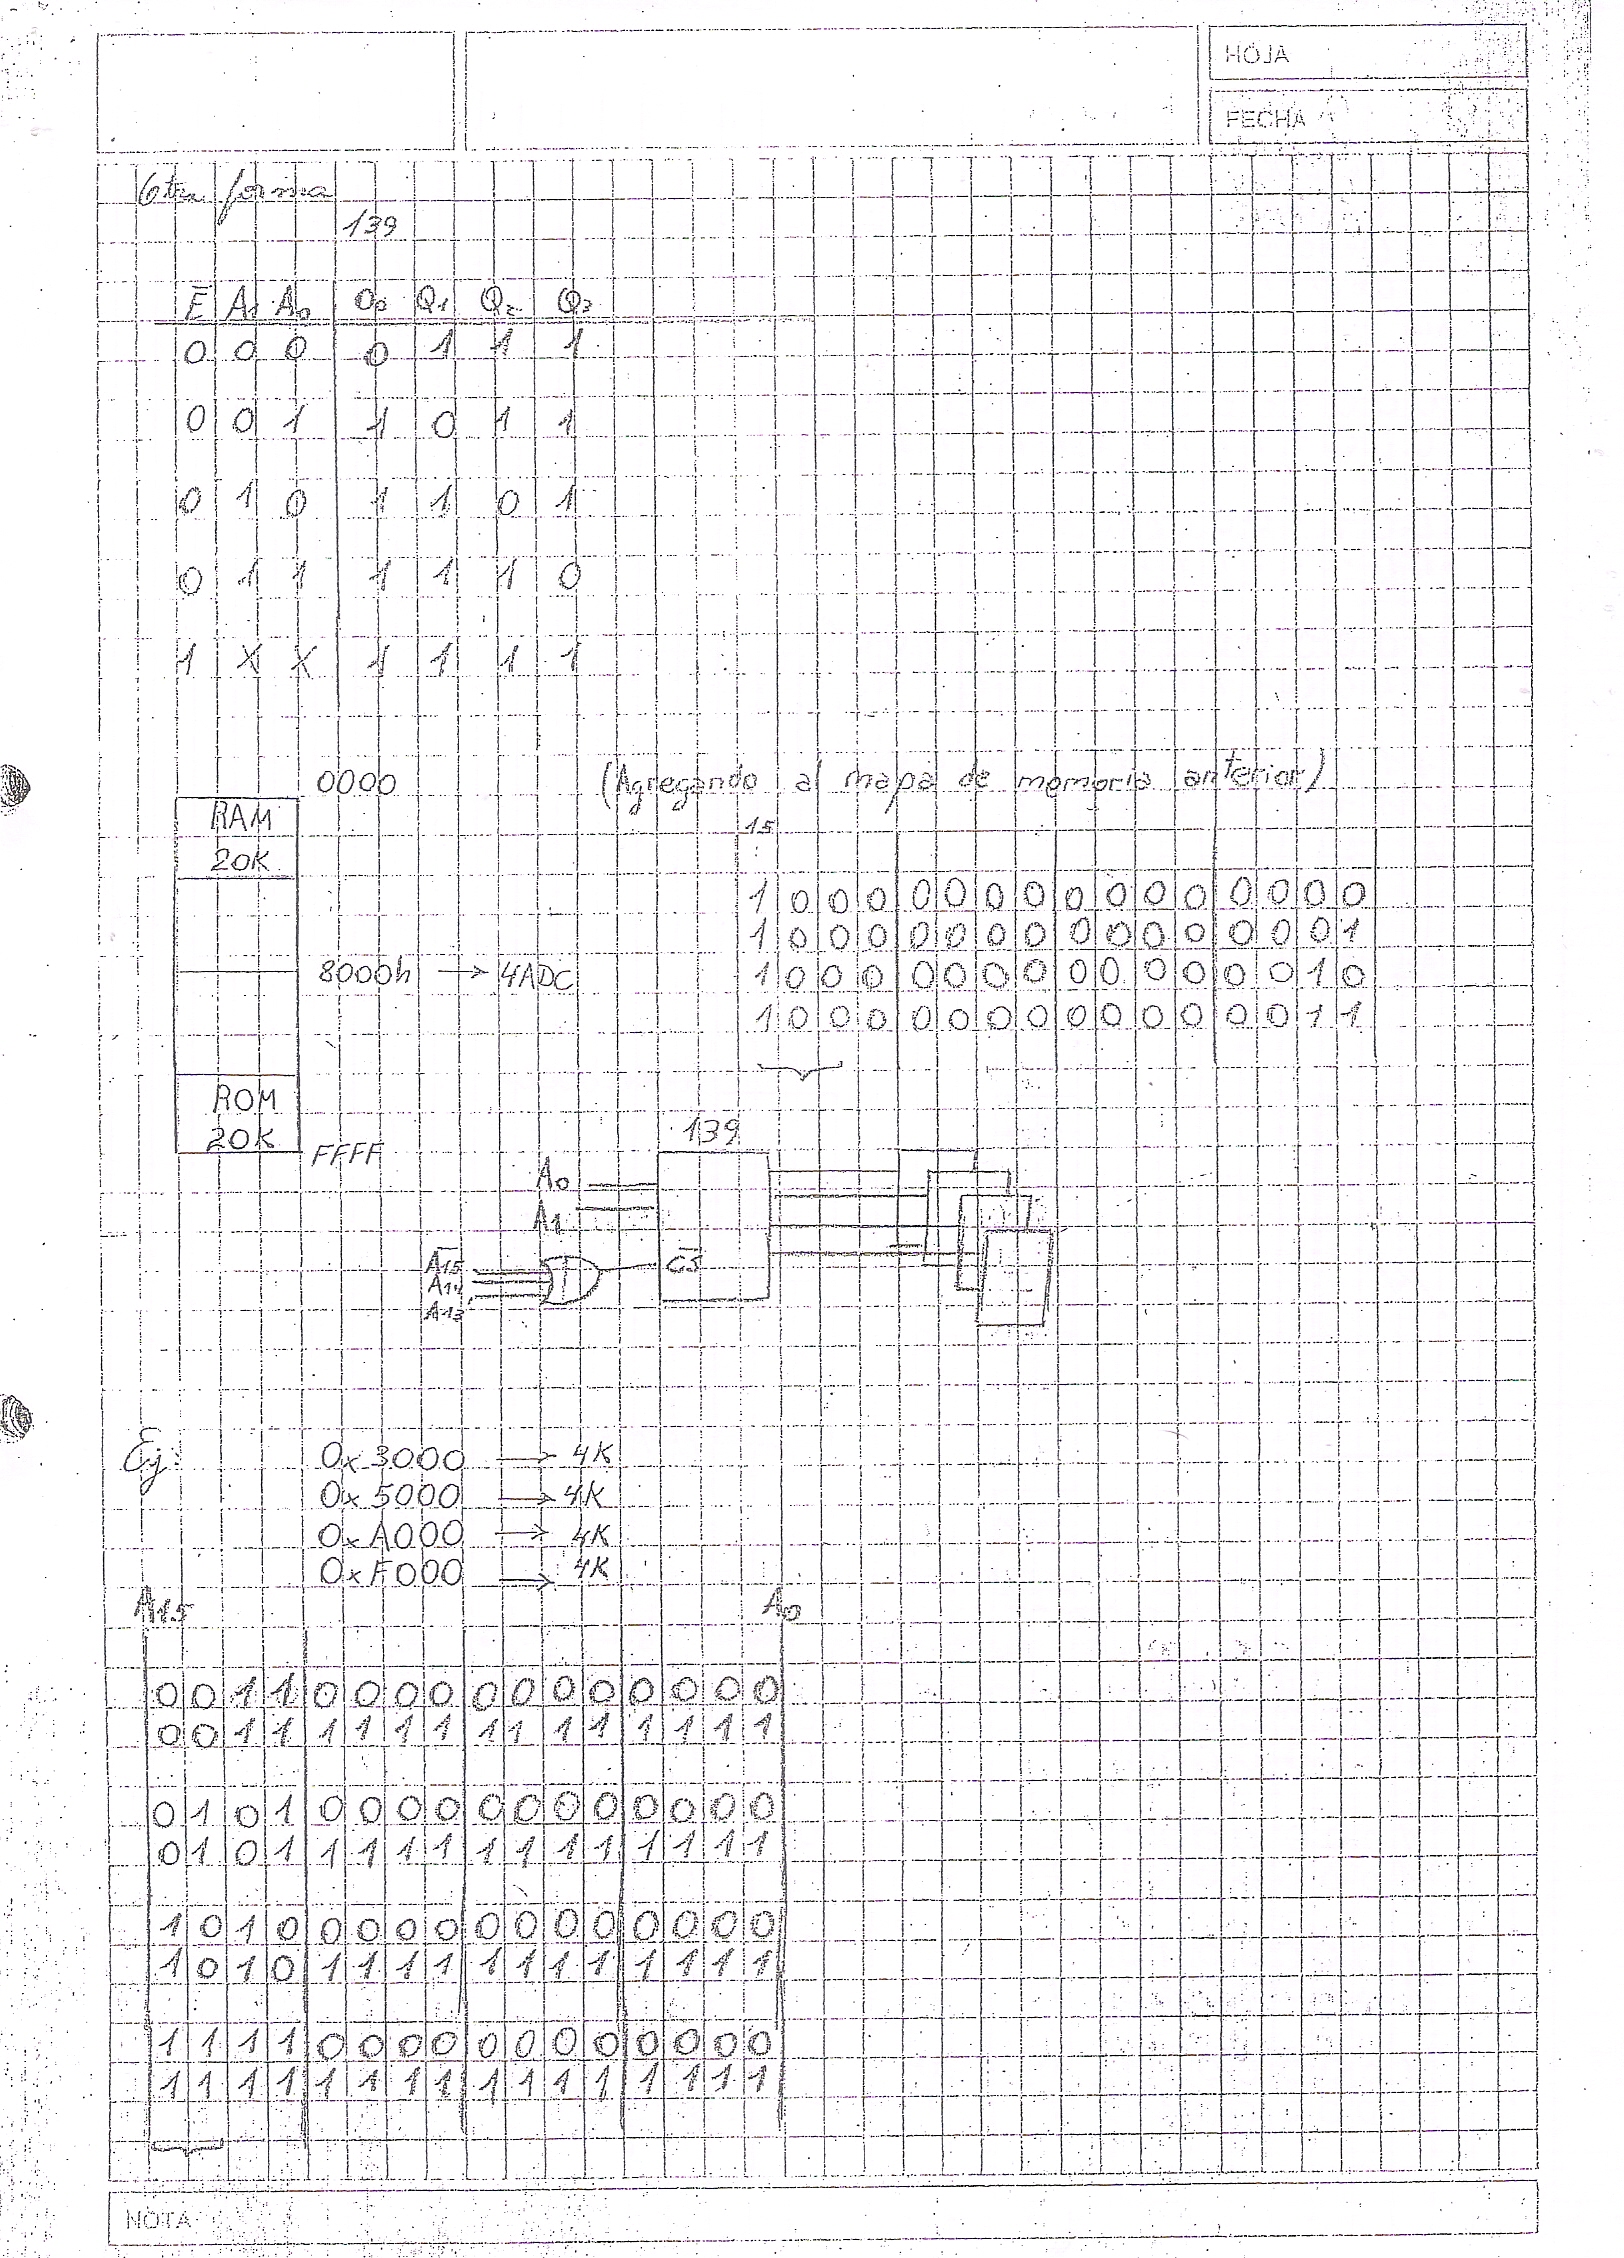 HOJA
FECHA
Otra forma
139
E̅ A1 A0 O0 Q1 Q2 Q3
0 0 0 0 1 1 1
0 0 1 1 0 1 1
0 1 0 1 1 0 1
0 1 1 1 1 1 0
1 X X 1 1 1 1
0000 (Agregando al mapa de memoria anterior)
RAM
20K
15
1 0 0 0 0 0 0 0 0 0 0 0 0 0 0 0
1 0 0 0 0 0 0 0 0 0 0 0 0 0 0 1
8000h → 4ADC 1 0 0 0 0 0 0 0 0 0 0 0 0 0 1 0
1 0 0 0 0 0 0 0 0 0 0 0 0 0 1 1
ROM
20K
FFFF
139
A0
A1
A̅1̅5̅
A14
A13
C̅S̅
Ej:
0x3000 → 4K
0x5000 → 4K
0xA000 → 4K
0xF000 → 4K
A15 A0
0 0 1 1 0 0 0 0 0 0 0 0 0 0 0 0
0 0 1 1 1 1 1 1 1 1 1 1 1 1 1 1
0 1 0 1 0 0 0 0 0 0 0 0 0 0 0 0
0 1 0 1 1 1 1 1 1 1 1 1 1 1 1 1
1 0 1 0 0 0 0 0 0 0 0 0 0 0 0 0
1 0 1 0 1 1 1 1 1 1 1 1 1 1 1 1
1 1 1 1 0 0 0 0 0 0 0 0 0 0 0 0
1 1 1 1 1 1 1 1 1 1 1 1 1 1 1 1
NOTA